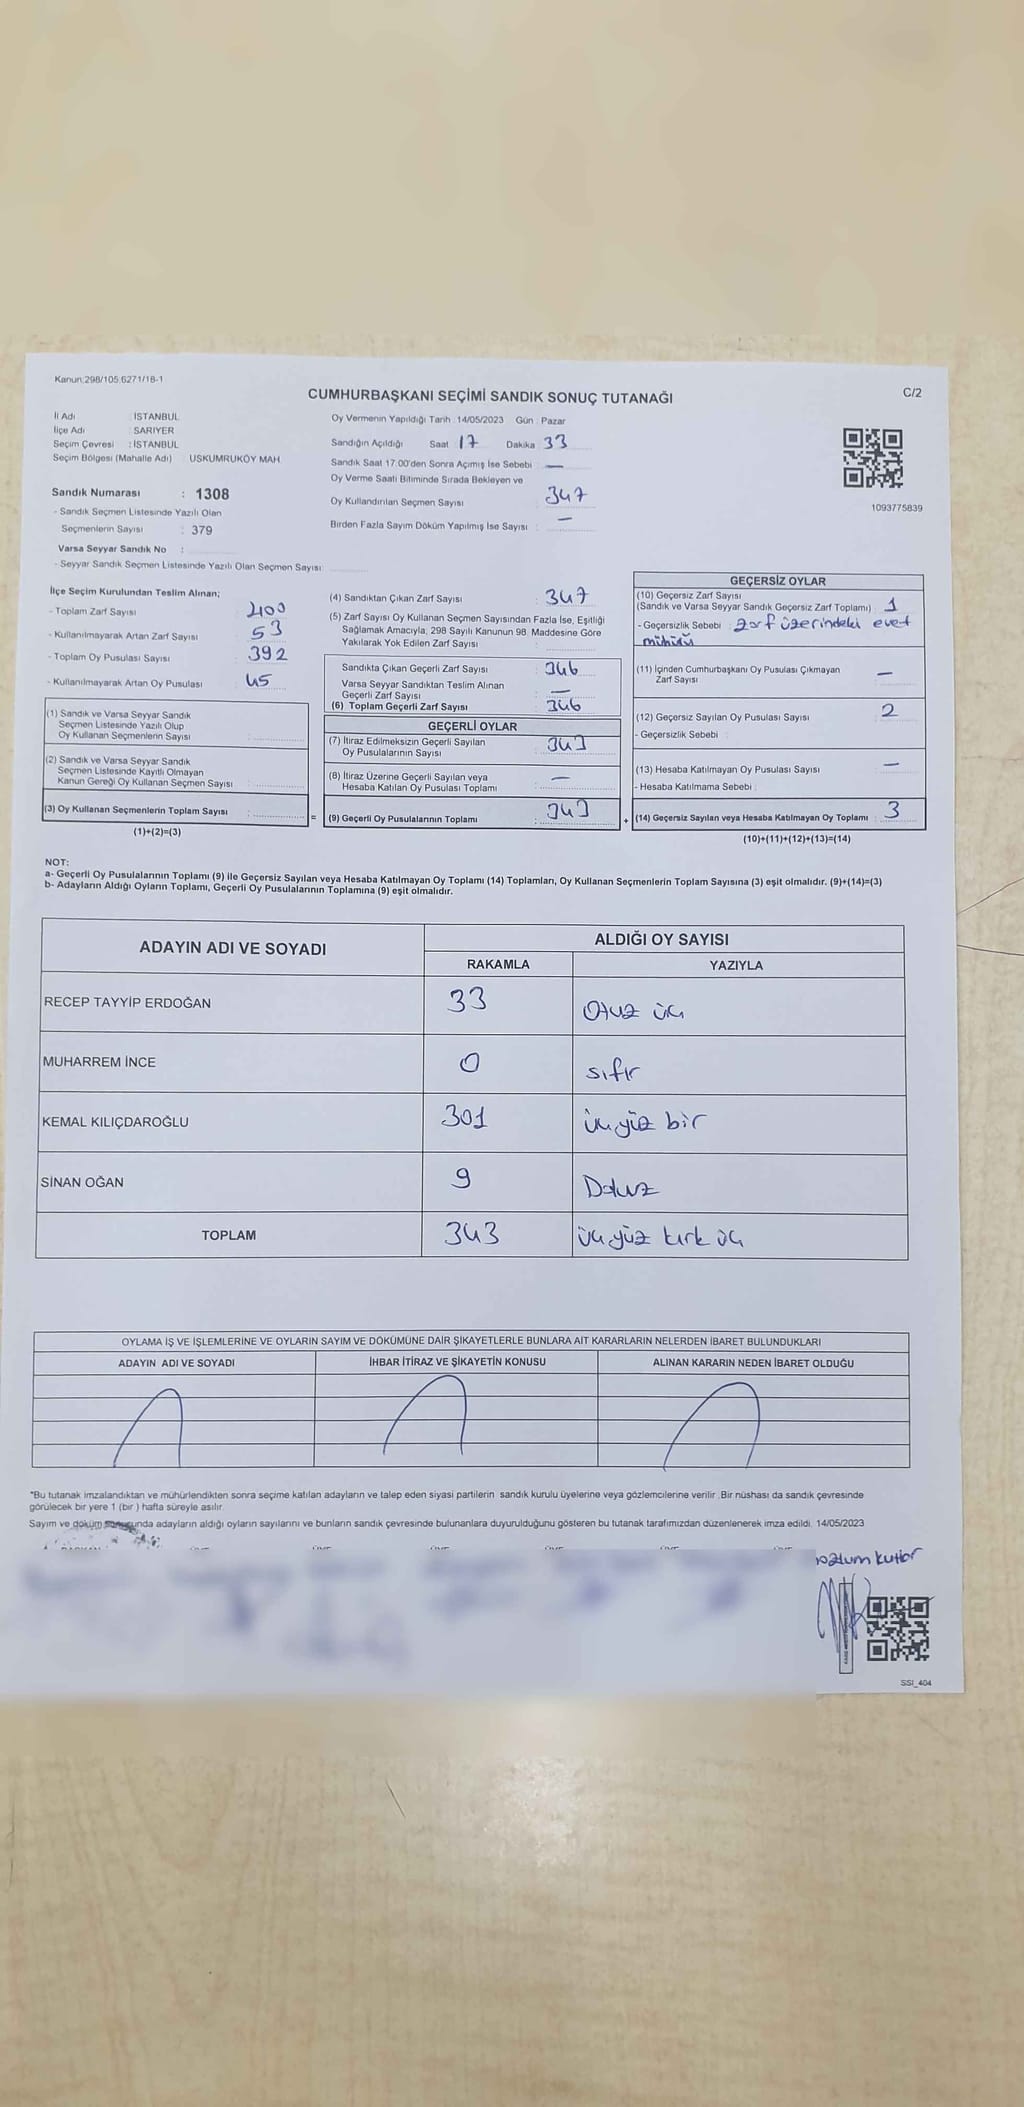 Kanun:298/105,6271/18-1
C/2
CUMHURBAŞKANI SEÇİMİ SANDIK SONUÇ TUTANAĞI
İl Adı : İSTANBUL
İlçe Adı : SARIYER
Seçim Çevresi : İSTANBUL
Seçim Bölgesi (Mahalle Adı) : USKUMRUKÖY MAH.
Sandık Numarası : 1308
- Sandık Seçmen Listesinde Yazılı Olan
Seçmenlerin Sayısı : 379
Varsa Seyyar Sandık No :
- Seyyar Sandık Seçmen Listesinde Yazılı Olan Seçmen Sayısı:
Oy Vermenin Yapıldığı Tarih : 14/05/2023 Gün : Pazar
Sandığın Açıldığı Saat 17 Dakika 33
Sandık Saat 17:00'den Sonra Açılmış İse Sebebi : —
Oy Verme Saati Bitiminde Sırada Bekleyen ve
Oy Kullandırılan Seçmen Sayısı : 347
Birden Fazla Sayım Döküm Yapılmış İse Sayısı : —
1093775839
İlçe Seçim Kurulundan Teslim Alınan;
- Toplam Zarf Sayısı : 400
- Kullanılmayarak Artan Zarf Sayısı : 53
- Toplam Oy Pusulası Sayısı : 392
- Kullanılmayarak Artan Oy Pusulası : 45
(1) Sandık ve Varsa Seyyar Sandık
Seçmen Listesinde Yazılı Olup
Oy Kullanan Seçmenlerin Sayısı :
(2) Sandık ve Varsa Seyyar Sandık
Seçmen Listesinde Kayıtlı Olmayan
Kanun Gereği Oy Kullanan Seçmen Sayısı :
(3) Oy Kullanan Seçmenlerin Toplam Sayısı :
(1)+(2)=(3)
(4) Sandıktan Çıkan Zarf Sayısı : 347
(5) Zarf Sayısı Oy Kullanan Seçmen Sayısından Fazla İse, Eşitliği
Sağlamak Amacıyla, 298 Sayılı Kanunun 98. Maddesine Göre
Yakılarak Yok Edilen Zarf Sayısı :
Sandıkta Çıkan Geçerli Zarf Sayısı : 346
Varsa Seyyar Sandıktan Teslim Alınan
Geçerli Zarf Sayısı : —
(6) Toplam Geçerli Zarf Sayısı : 346
GEÇERLİ OYLAR
(7) İtiraz Edilmeksizin Geçerli Sayılan
Oy Pusulalarının Sayısı : 343
(8) İtiraz Üzerine Geçerli Sayılan veya
Hesaba Katılan Oy Pusulası Toplamı : —
= (9) Geçerli Oy Pusulalarının Toplamı : 343
GEÇERSİZ OYLAR
(10) Geçersiz Zarf Sayısı
(Sandık ve Varsa Seyyar Sandık Geçersiz Zarf Toplamı) : 1
- Geçersizlik Sebebi : zarf üzerindeki evet
mühürü
(11) İçinden Cumhurbaşkanı Oy Pusulası Çıkmayan
Zarf Sayısı : —
(12) Geçersiz Sayılan Oy Pusulası Sayısı : 2
- Geçersizlik Sebebi :
(13) Hesaba Katılmayan Oy Pusulası Sayısı : —
- Hesaba Katılmama Sebebi :
+ (14) Geçersiz Sayılan veya Hesaba Katılmayan Oy Toplamı : 3
(10)+(11)+(12)+(13)=(14)
NOT:
a- Geçerli Oy Pusulalarının Toplamı (9) ile Geçersiz Sayılan veya Hesaba Katılmayan Oy Toplamı (14) Toplamları, Oy Kullanan Seçmenlerin Toplam Sayısına (3) eşit olmalıdır. (9)+(14)=(3)
b- Adayların Aldığı Oyların Toplamı, Geçerli Oy Pusulalarının Toplamına (9) eşit olmalıdır.
ADAYIN ADI VE SOYADI
ALDIĞI OY SAYISI
RAKAMLA YAZIYLA
RECEP TAYYİP ERDOĞAN 33 Otuz üç
MUHARREM İNCE 0 sıfır
KEMAL KILIÇDAROĞLU 301 üçyüz bir
SİNAN OĞAN 9 Dokuz
TOPLAM 343 üçyüz kırk üç
OYLAMA İŞ VE İŞLEMLERİNE VE OYLARIN SAYIM VE DÖKÜMÜNE DAİR ŞİKAYETLERLE BUNLARA AİT KARARLARIN NELERDEN İBARET BULUNDUKLARI
ADAYIN ADI VE SOYADI İHBAR İTİRAZ VE ŞİKAYETİN KONUSU ALINAN KARARIN NEDEN İBARET OLDUĞU
"Bu tutanak imzalandıktan ve mühürlendikten sonra seçime katılan adayların ve talep eden siyasi partilerin sandık kurulu üyelerine veya gözlemcilerine verilir. Bir nüshası da sandık çevresinde
görülecek bir yere 1 (bir ) hafta süreyle asılır.
Sayım ve döküm sonunda adayların aldığı oyların sayılarını ve bunların sandık çevresinde bulunanlara duyurulduğunu gösteren bu tutanak tarafımızdan düzenlenerek imza edildi. 14/05/2023
SSI_404